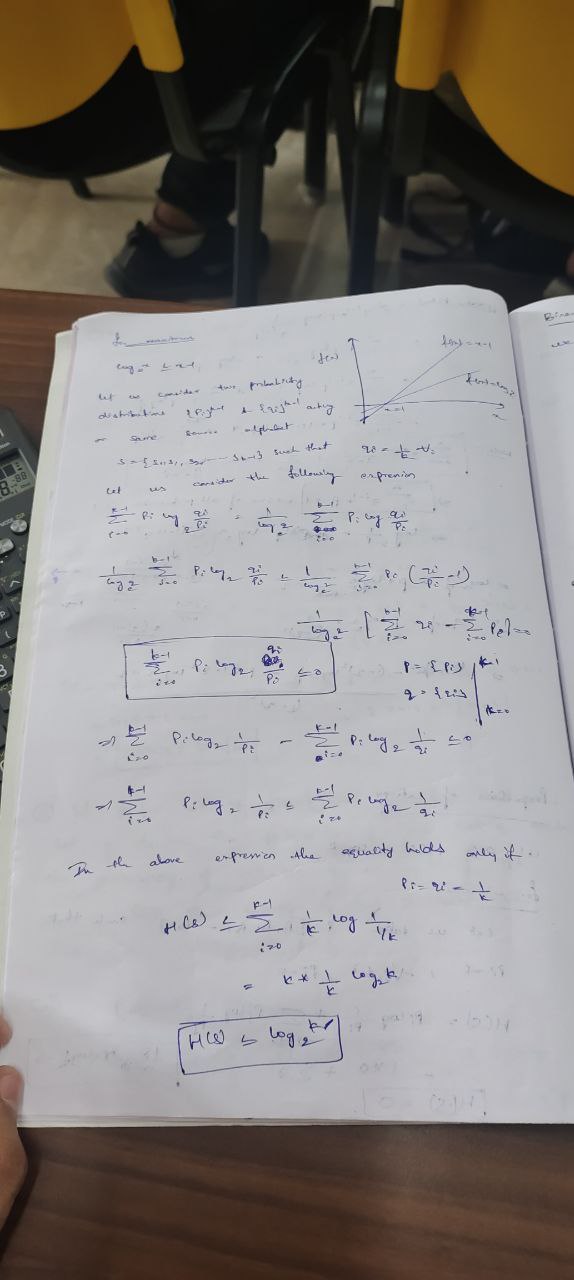 maximum
log_e x ≤ x-1
f(x)
f(x) = x-1
x=1
x
Let us consider two probability
distributions {Pi}^{k-1} & {qi}^{k-1} acting
on same source alphabet
S = {S0, S1, S2, ---- Sk-1} such that qi = 1/k ∀i
Let us consider the following expression
Σ_{i=0}^{k-1} Pi log_2 qi/Pi = 1/log_e 2 Σ_{i=0}^{k-1} Pi log qi/Pi
1/log_e 2 Σ_{i=0}^{k-1} Pi log_2 qi/Pi ≤ 1/log_e 2 Σ_{i=0}^{k-1} Pi (qi/Pi - 1)
1/log_e 2 [Σ_{i=0}^{k-1} qi - Σ_{i=0}^{k-1} Pi] = 0
Σ_{i=0}^{k-1} Pi log_2 qi/Pi ≤ 0
P = {Pi} | k-1
q = {qi} | k=0
⇒ Σ_{i=0}^{k-1} Pi log_2 1/Pi - Σ_{i=0}^{k-1} Pi log_2 1/qi ≤ 0
⇒ Σ_{i=0}^{k-1} Pi log_2 1/Pi ≤ Σ_{i=0}^{k-1} Pi log_2 1/qi
In the above expression the equality holds only if.
Pi = qi = 1/k
H(S) ≤ Σ_{i=0}^{k-1} 1/k log 1/1/k
= k * 1/k log_2 k
H(S) ≤ log_2 k